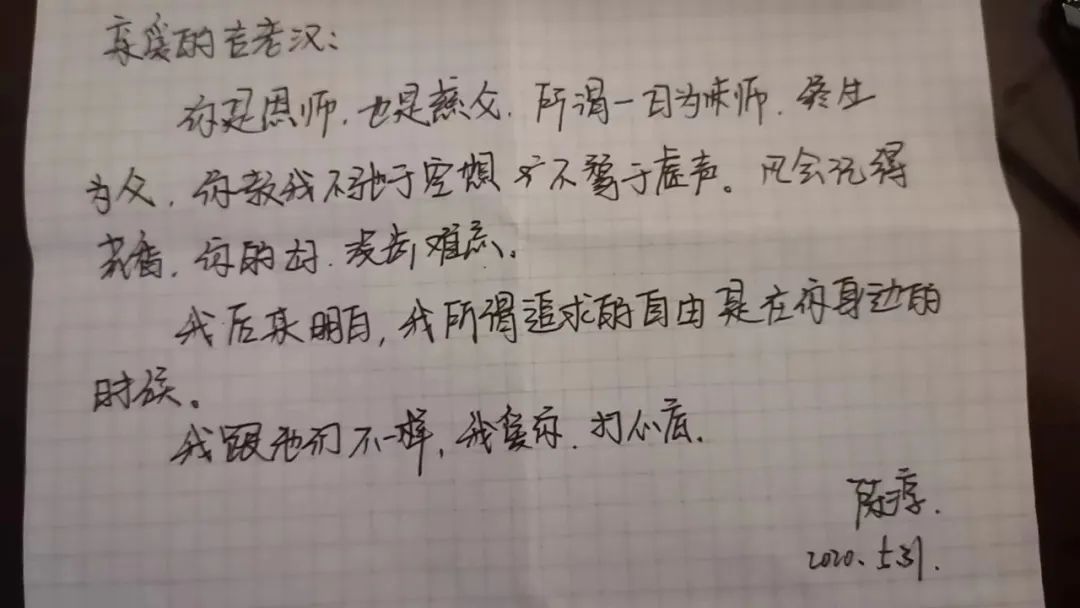 亲爱的吉老汉:
你是恩师.也是慈父.所谓一日为师.终生
为父.你教我不驰于空想 亦不骛于虚声。风会记得
花香.你的好.没齿难忘。
我后来明白,我所谓追求的自由是在你身边的
时候。
我跟他们不一样,我爱你.打心底.
陈淳.
2020.5.31.